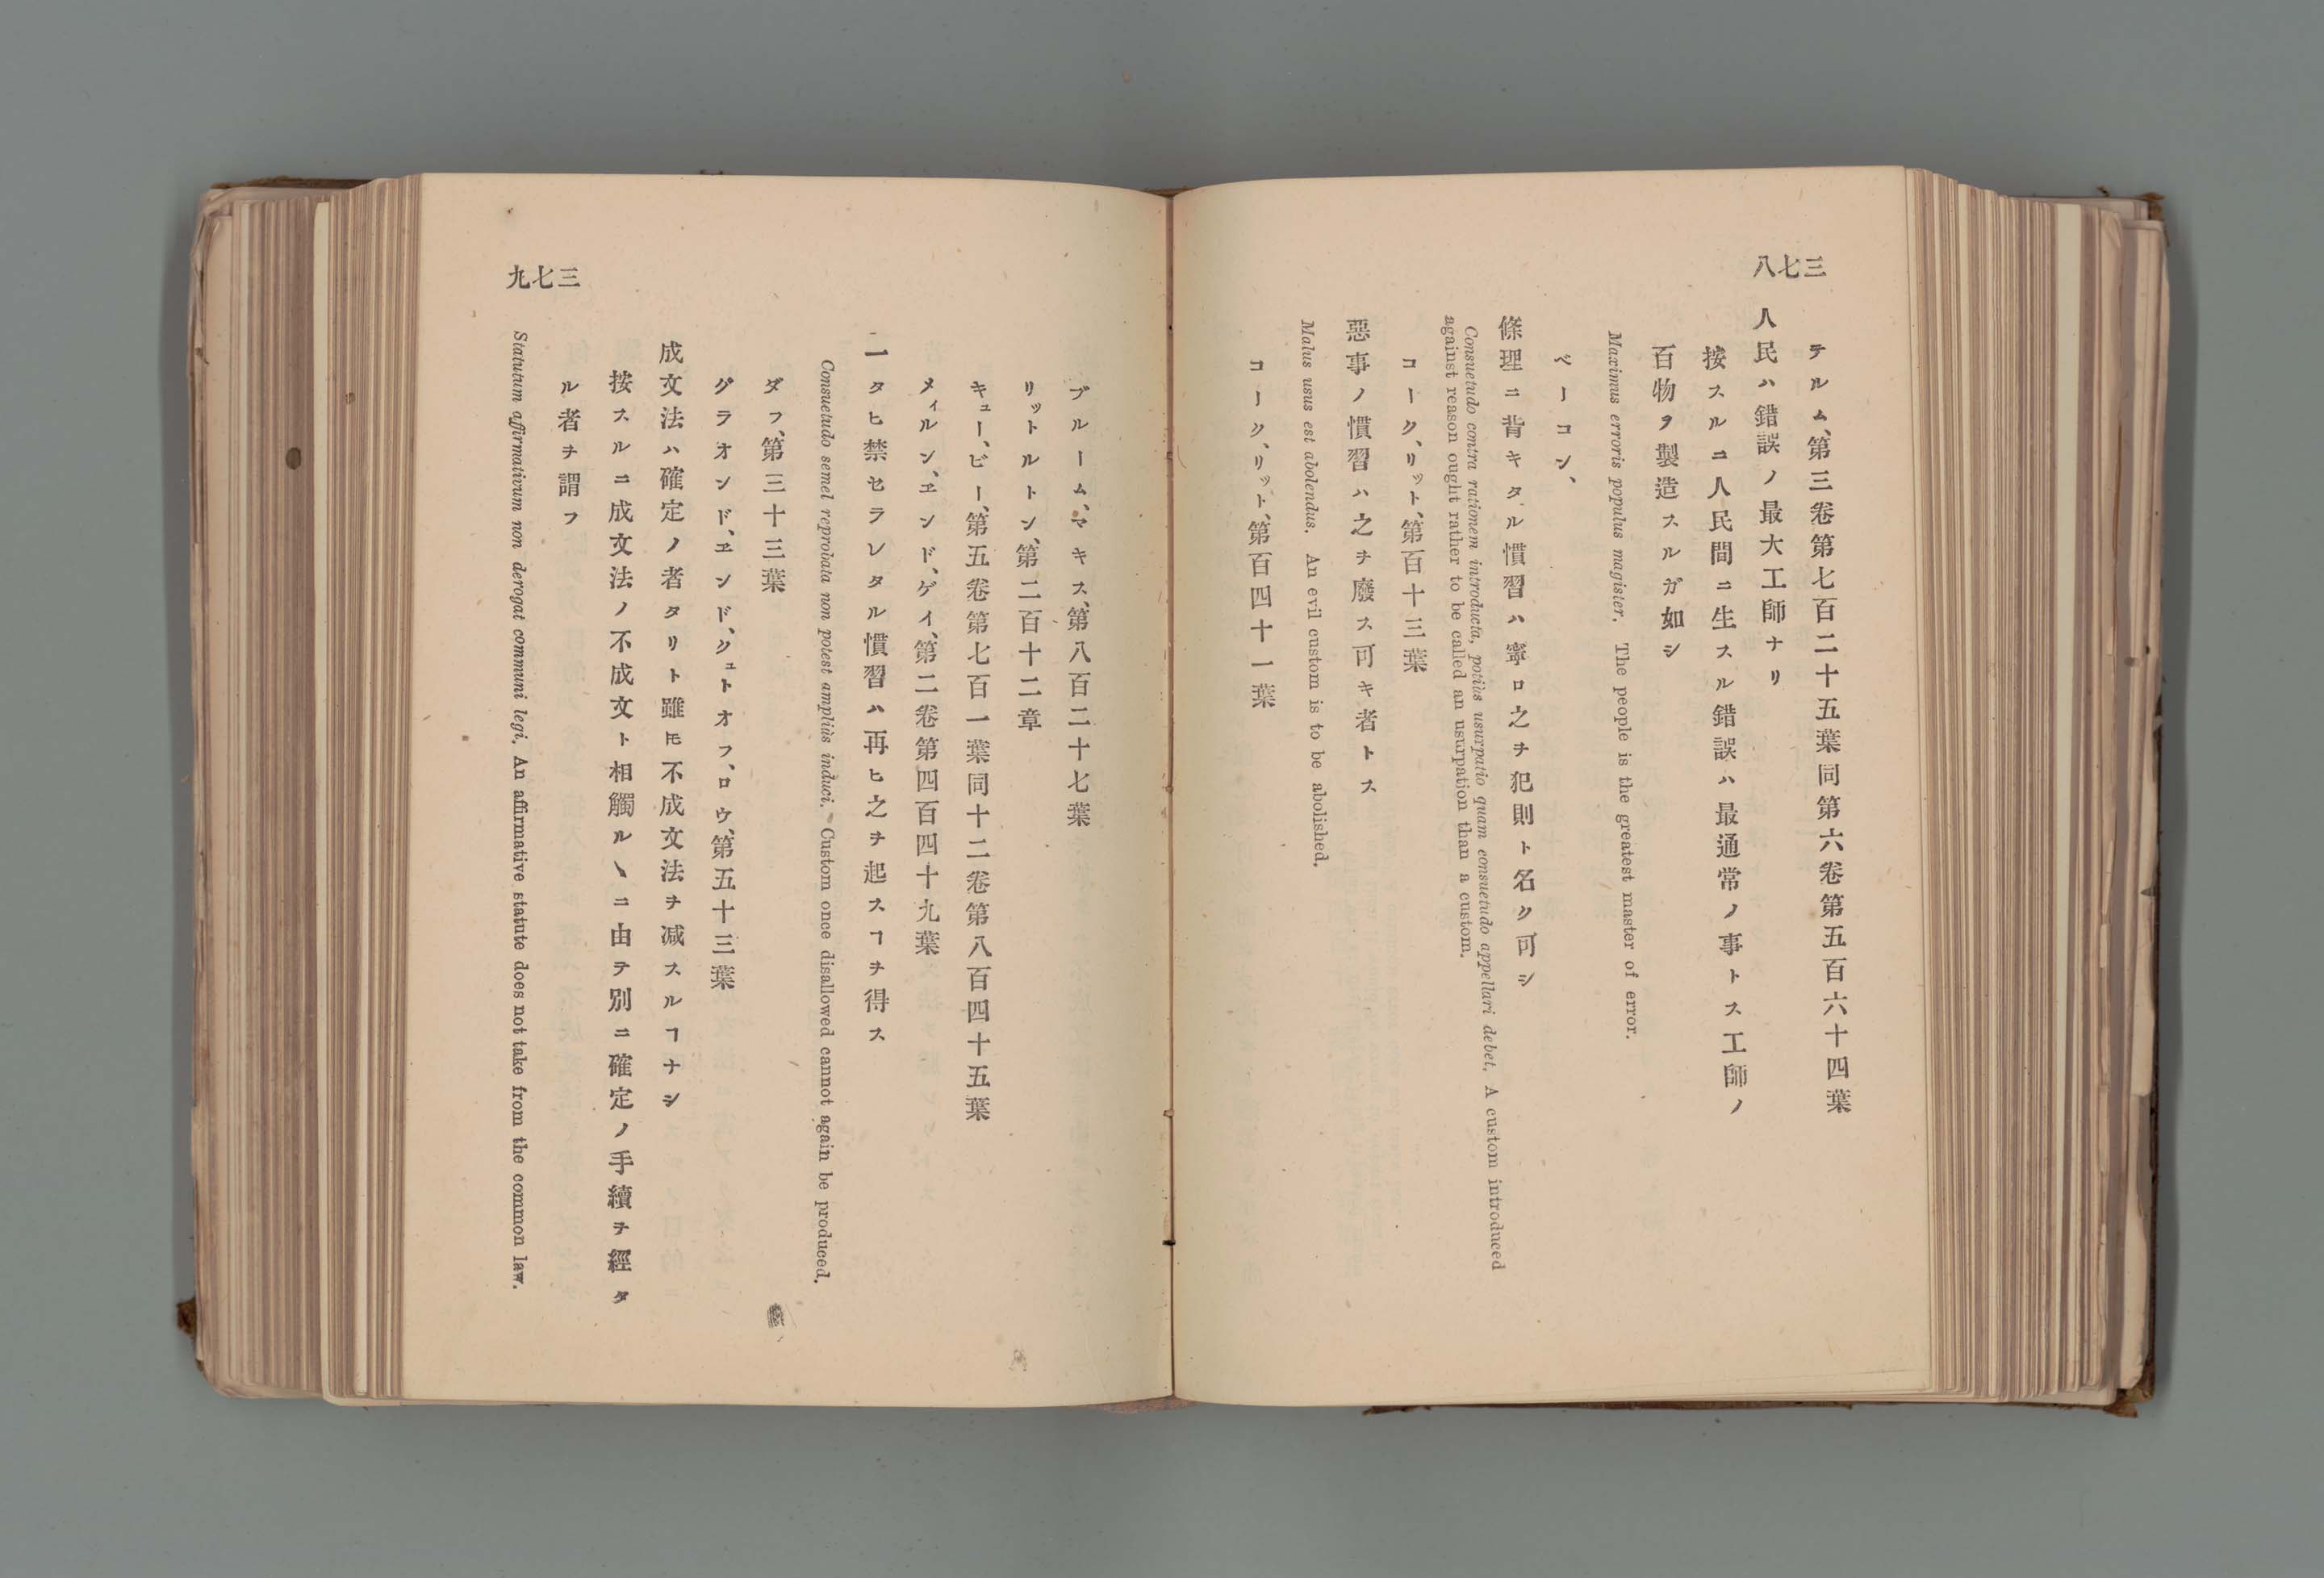 三七八
テルム、第三卷第七百二十五葉同第六卷第五百六十四葉
人民ハ錯誤ノ最大工師ナリ
按スルニ人民間ニ生スル錯誤ハ最通常ノ事トス工師ノ
百物ヲ製造スルガ如シ
Maximus erroris populus magister. The people is the greatest master of error.
ベーコン、
條理ニ背キタル慣習ハ寧ロ之ヲ犯則ト名ク可シ
Consuetudo contra rationem introducta, potiùs usurpatio quam consuetudo appellari debet. A custom introduced
against reason ought rather to be called an usurpation than a custom.
コーク、リット、第百十三葉
惡事ノ慣習ハ之ヲ廢ス可キ者トス
Malus usus est abolendus. An evil custom is to be abolished.
コーク、リット、第百四十一葉
三七九
ブルーム、マキス、第八百二十七葉
リットルトン、第二百十二章
キュー、ビー、第五卷第七百一葉同十二卷第八百四十五葉
メィルン、エンド、ゲイ、第二卷第四百四十九葉
一タヒ禁セラレタル慣習ハ再ヒ之ヲ起スヿヲ得ス
Consuetudo semel reprobata non potest ampliùs induci. Custom once disallowed cannot again be produced.
ダフ、第三十三葉
グラオンド、エンド、クュトオフ、ロウ、第五十三葉
成文法ハ確定ノ者タリト雖𪜈不成文法ヲ减スルヿナシ
按スルニ成文法ノ不成文ト相觸ルヽニ由テ別ニ確定ノ手續ヲ經タ
ル者ヲ謂フ
Statutum affirmativum non derogat communi legi. An affirmative statute does not take from the common law.